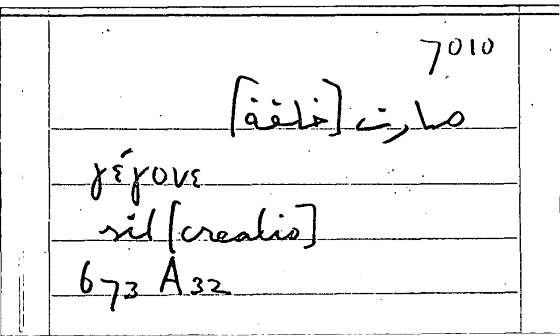 7010
صارت [خلقة]
γέγονε
sit [creatio]
673 A 32